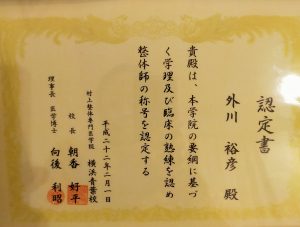 認定書
外川 裕彦 殿
貴殿は、本学院の要綱に基づ
く学理及び臨床の熟練を認め
整体師の称号を認定する
平成二十二年二月一日
村上整体専門医学院 横浜青葉校
校長 朝香 好平
理事長 医学博士 向後 利昭